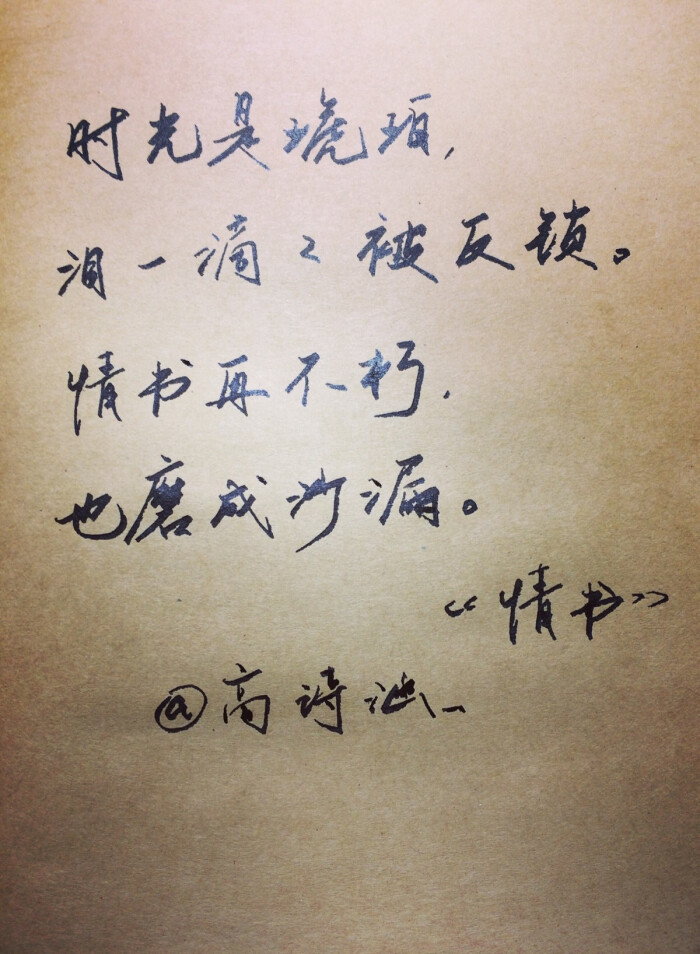 时光是琥珀,
泪一滴々被反锁。
情书再不朽,
也磨成沙漏。
《情书》
@高诗涵_